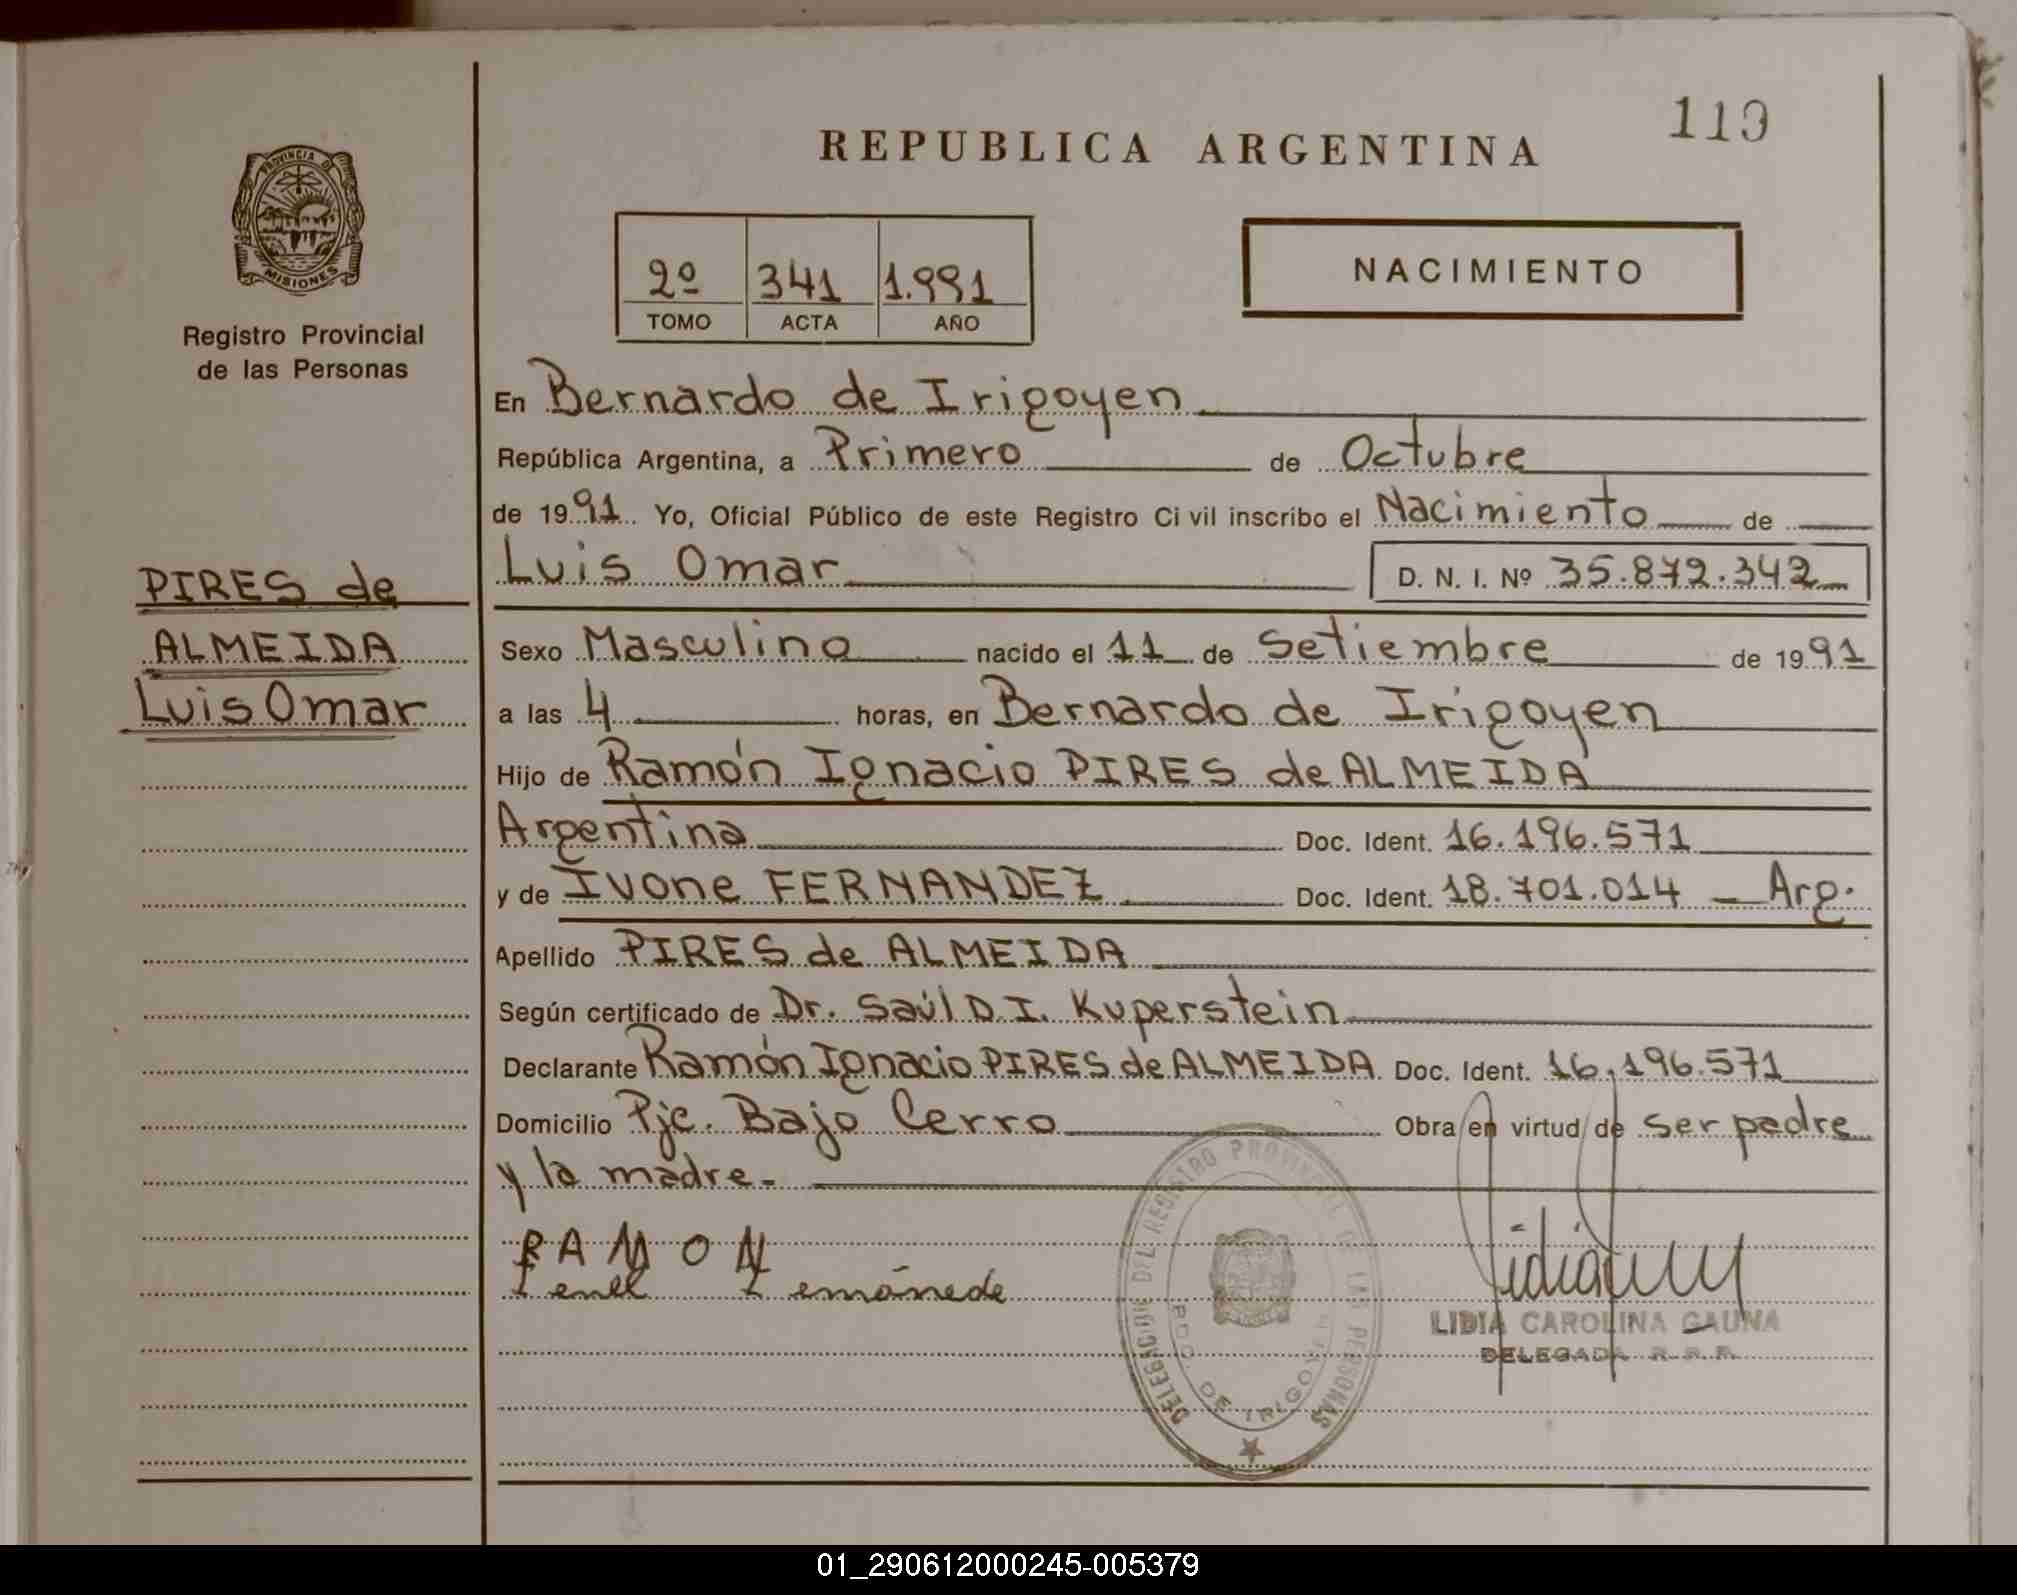 119
REPUBLICA ARGENTINA
PROVINCIA DE MISIONES
Registro Provincial
de las Personas
2º 341 1.991
TOMO ACTA AÑO
NACIMIENTO
En Bernardo de Irigoyen
República Argentina, a Primero de Octubre
de 1991 Yo, Oficial Público de este Registro Ci vil inscribo el Nacimiento de
Luis Omar D. N. I. Nº 35.872.342
PIRES de
ALMEIDA
Luis Omar
Sexo Masculino nacido el 11 de Setiembre de 1991
a las 4 horas, en Bernardo de Irigoyen
Hijo de Ramón Ignacio PIRES de ALMEIDA
Argentina Doc. Ident. 16.196.571
y de Ivone FERNANDEZ Doc. Ident. 18.701.014 _ Arg.
Apellido PIRES de ALMEIDA
Según certificado de Dr. Saúl D.I. Kuperstein
Declarante Ramón Ignacio PIRES de ALMEIDA Doc. Ident. 16.196.571
Domicilio Pje. Bajo Cerro Obra en virtud de ser padre
y la madre.
RAMON
DELEGACION DEL REGISTRO PROVINCIAL DE LAS PERSONAS
BDO. DE IRIGOYEN
LIDIA CAROLINA GAUNA
DELEGADA R. P. P.
01_290612000245-005379